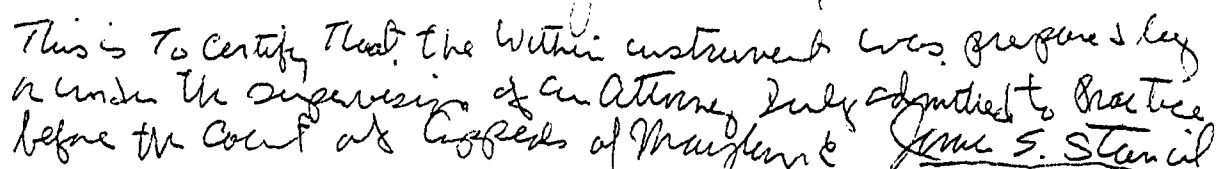 This is To Certify That the Within instrument was prepared by
or under the supervision of an Attorney Duly admitted to Practice
before the Court of Appeals of Maryland James S. Stancil